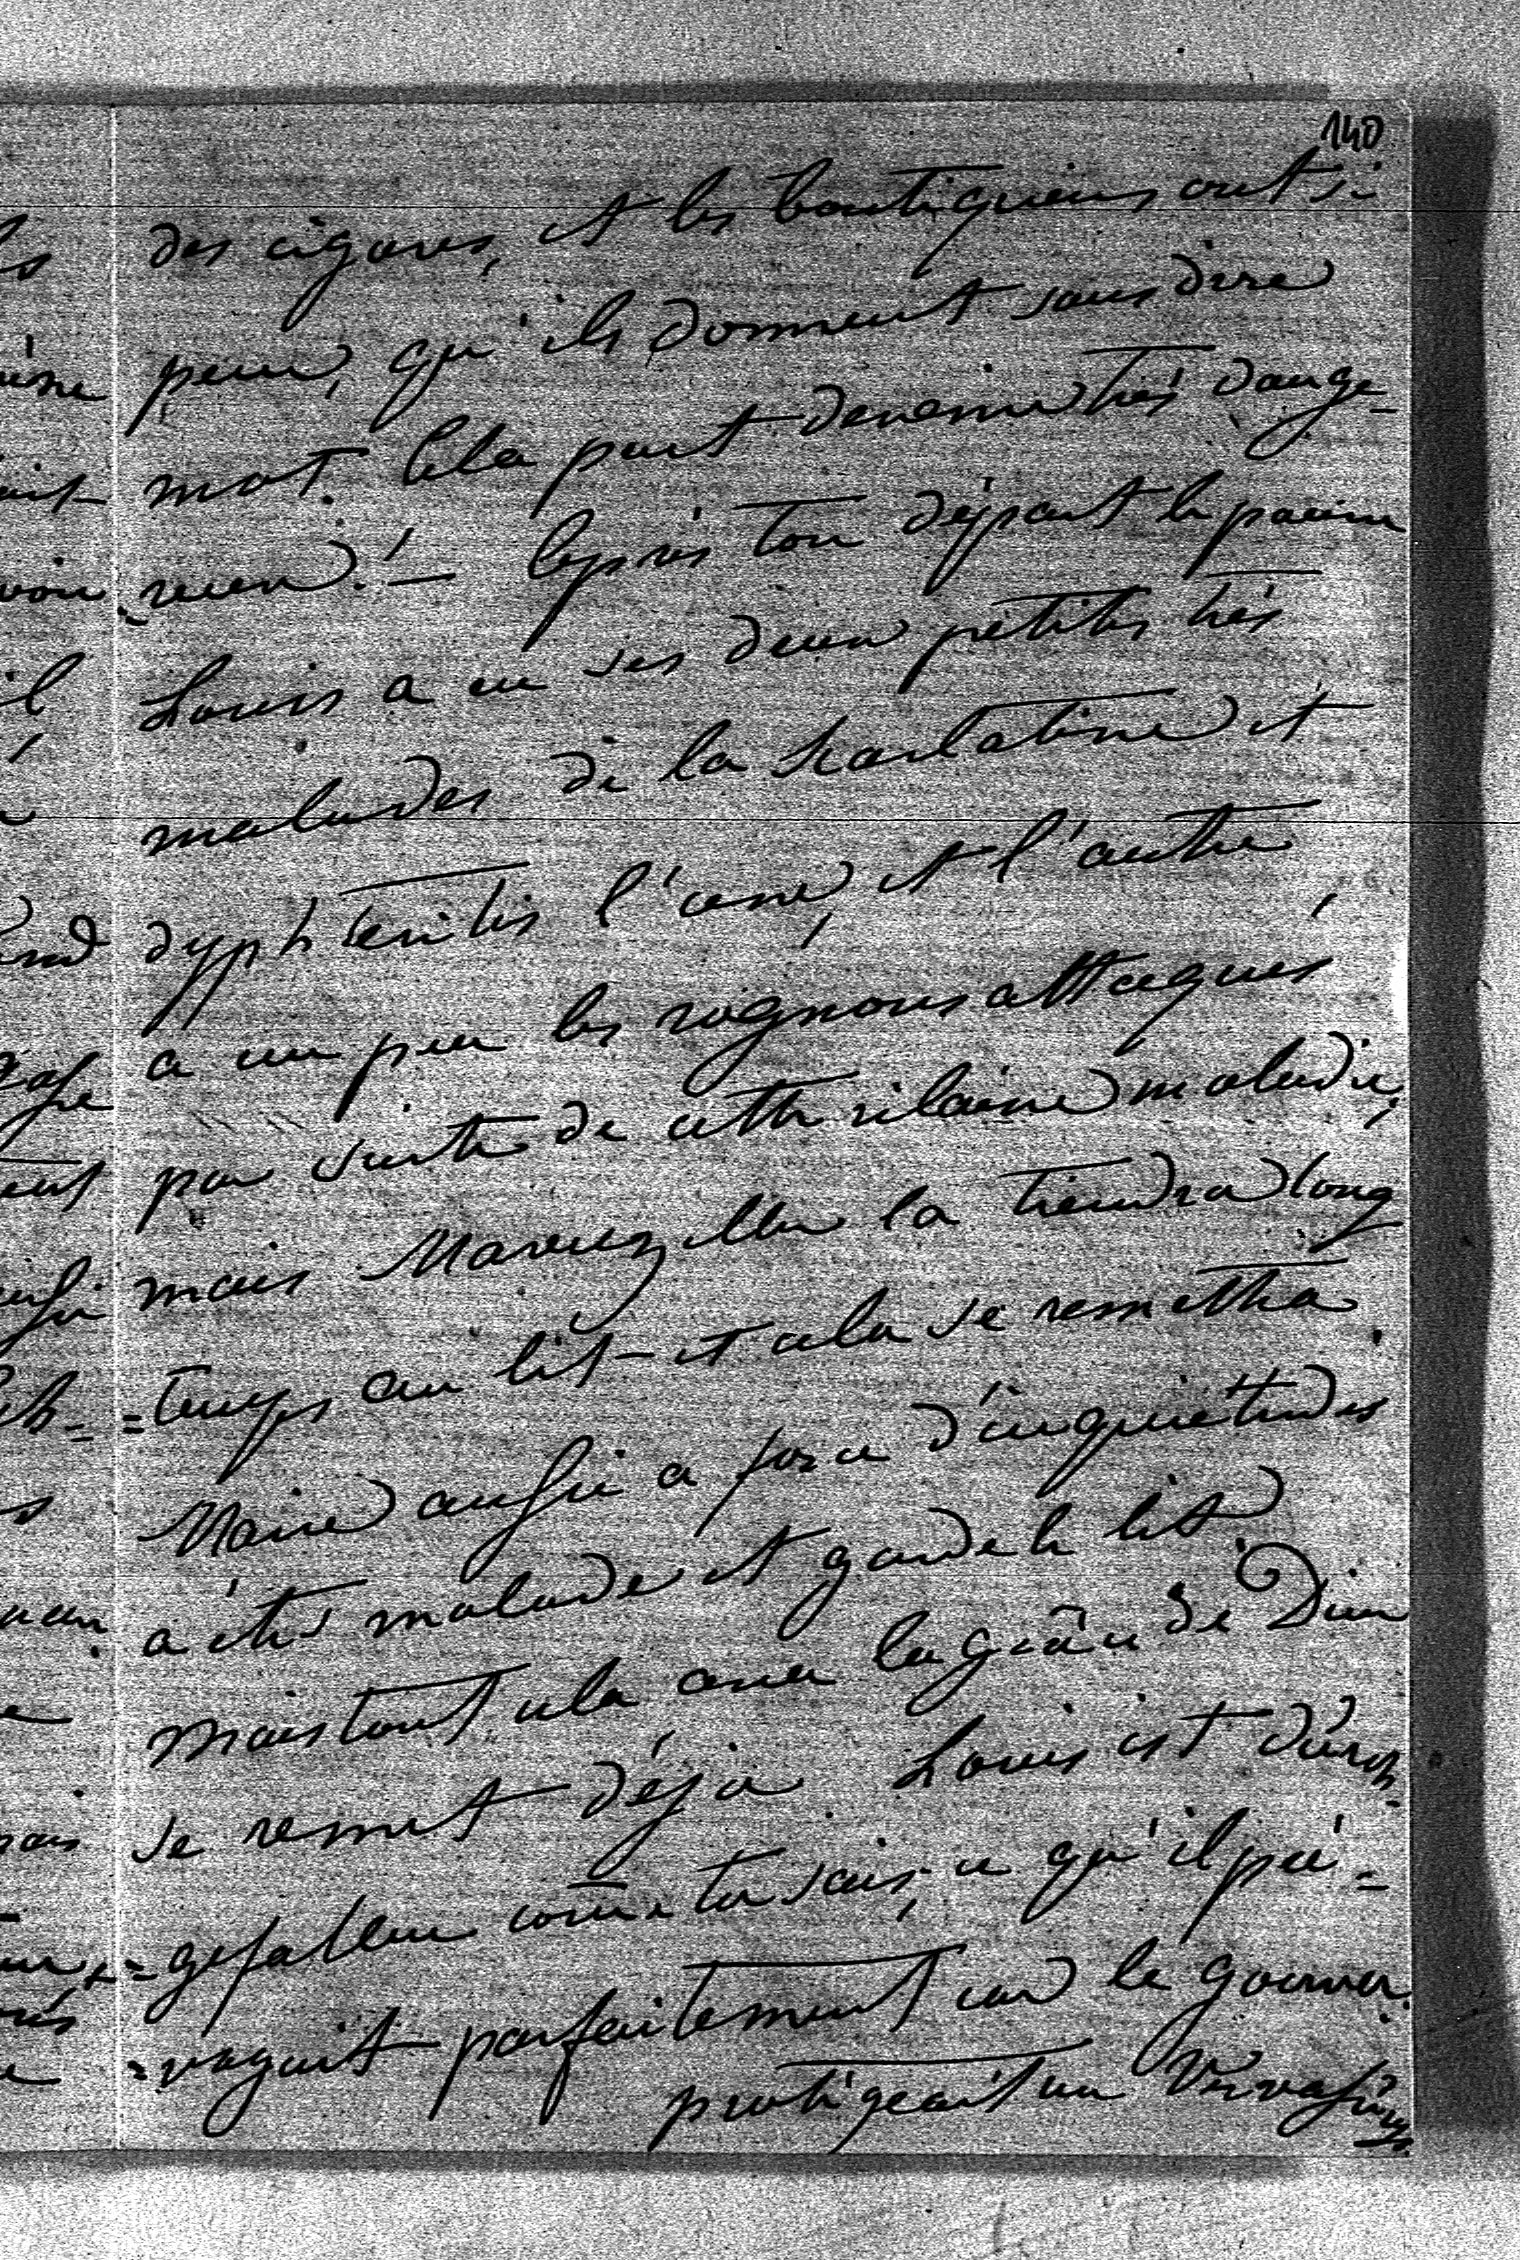 140
des cigares, et les boutiquiers ont si
peur, qu'ils donnent sans dire
mot. Cela peut devenir très dange-
-reux! — Après ton départ le pauvre
Louis a eu ses deux petites très
malades de la skarlatine et
dyphteritis l'une, et l'autre
a un peu les rognons attaqués
par suite de cette vilaine maladie,
mais la tiendra long
=temps au lit — et cela se remettra.
Marie aussi a force d'inquiétudes
a été malade et garde le lit.
Mais tout cela avec la grâce de Dieu
se remet déjà Louis est durch-
=gefallen come tu sais, ce qu'il pré=
=voyait parfaitement car le gouver.
protégeait un